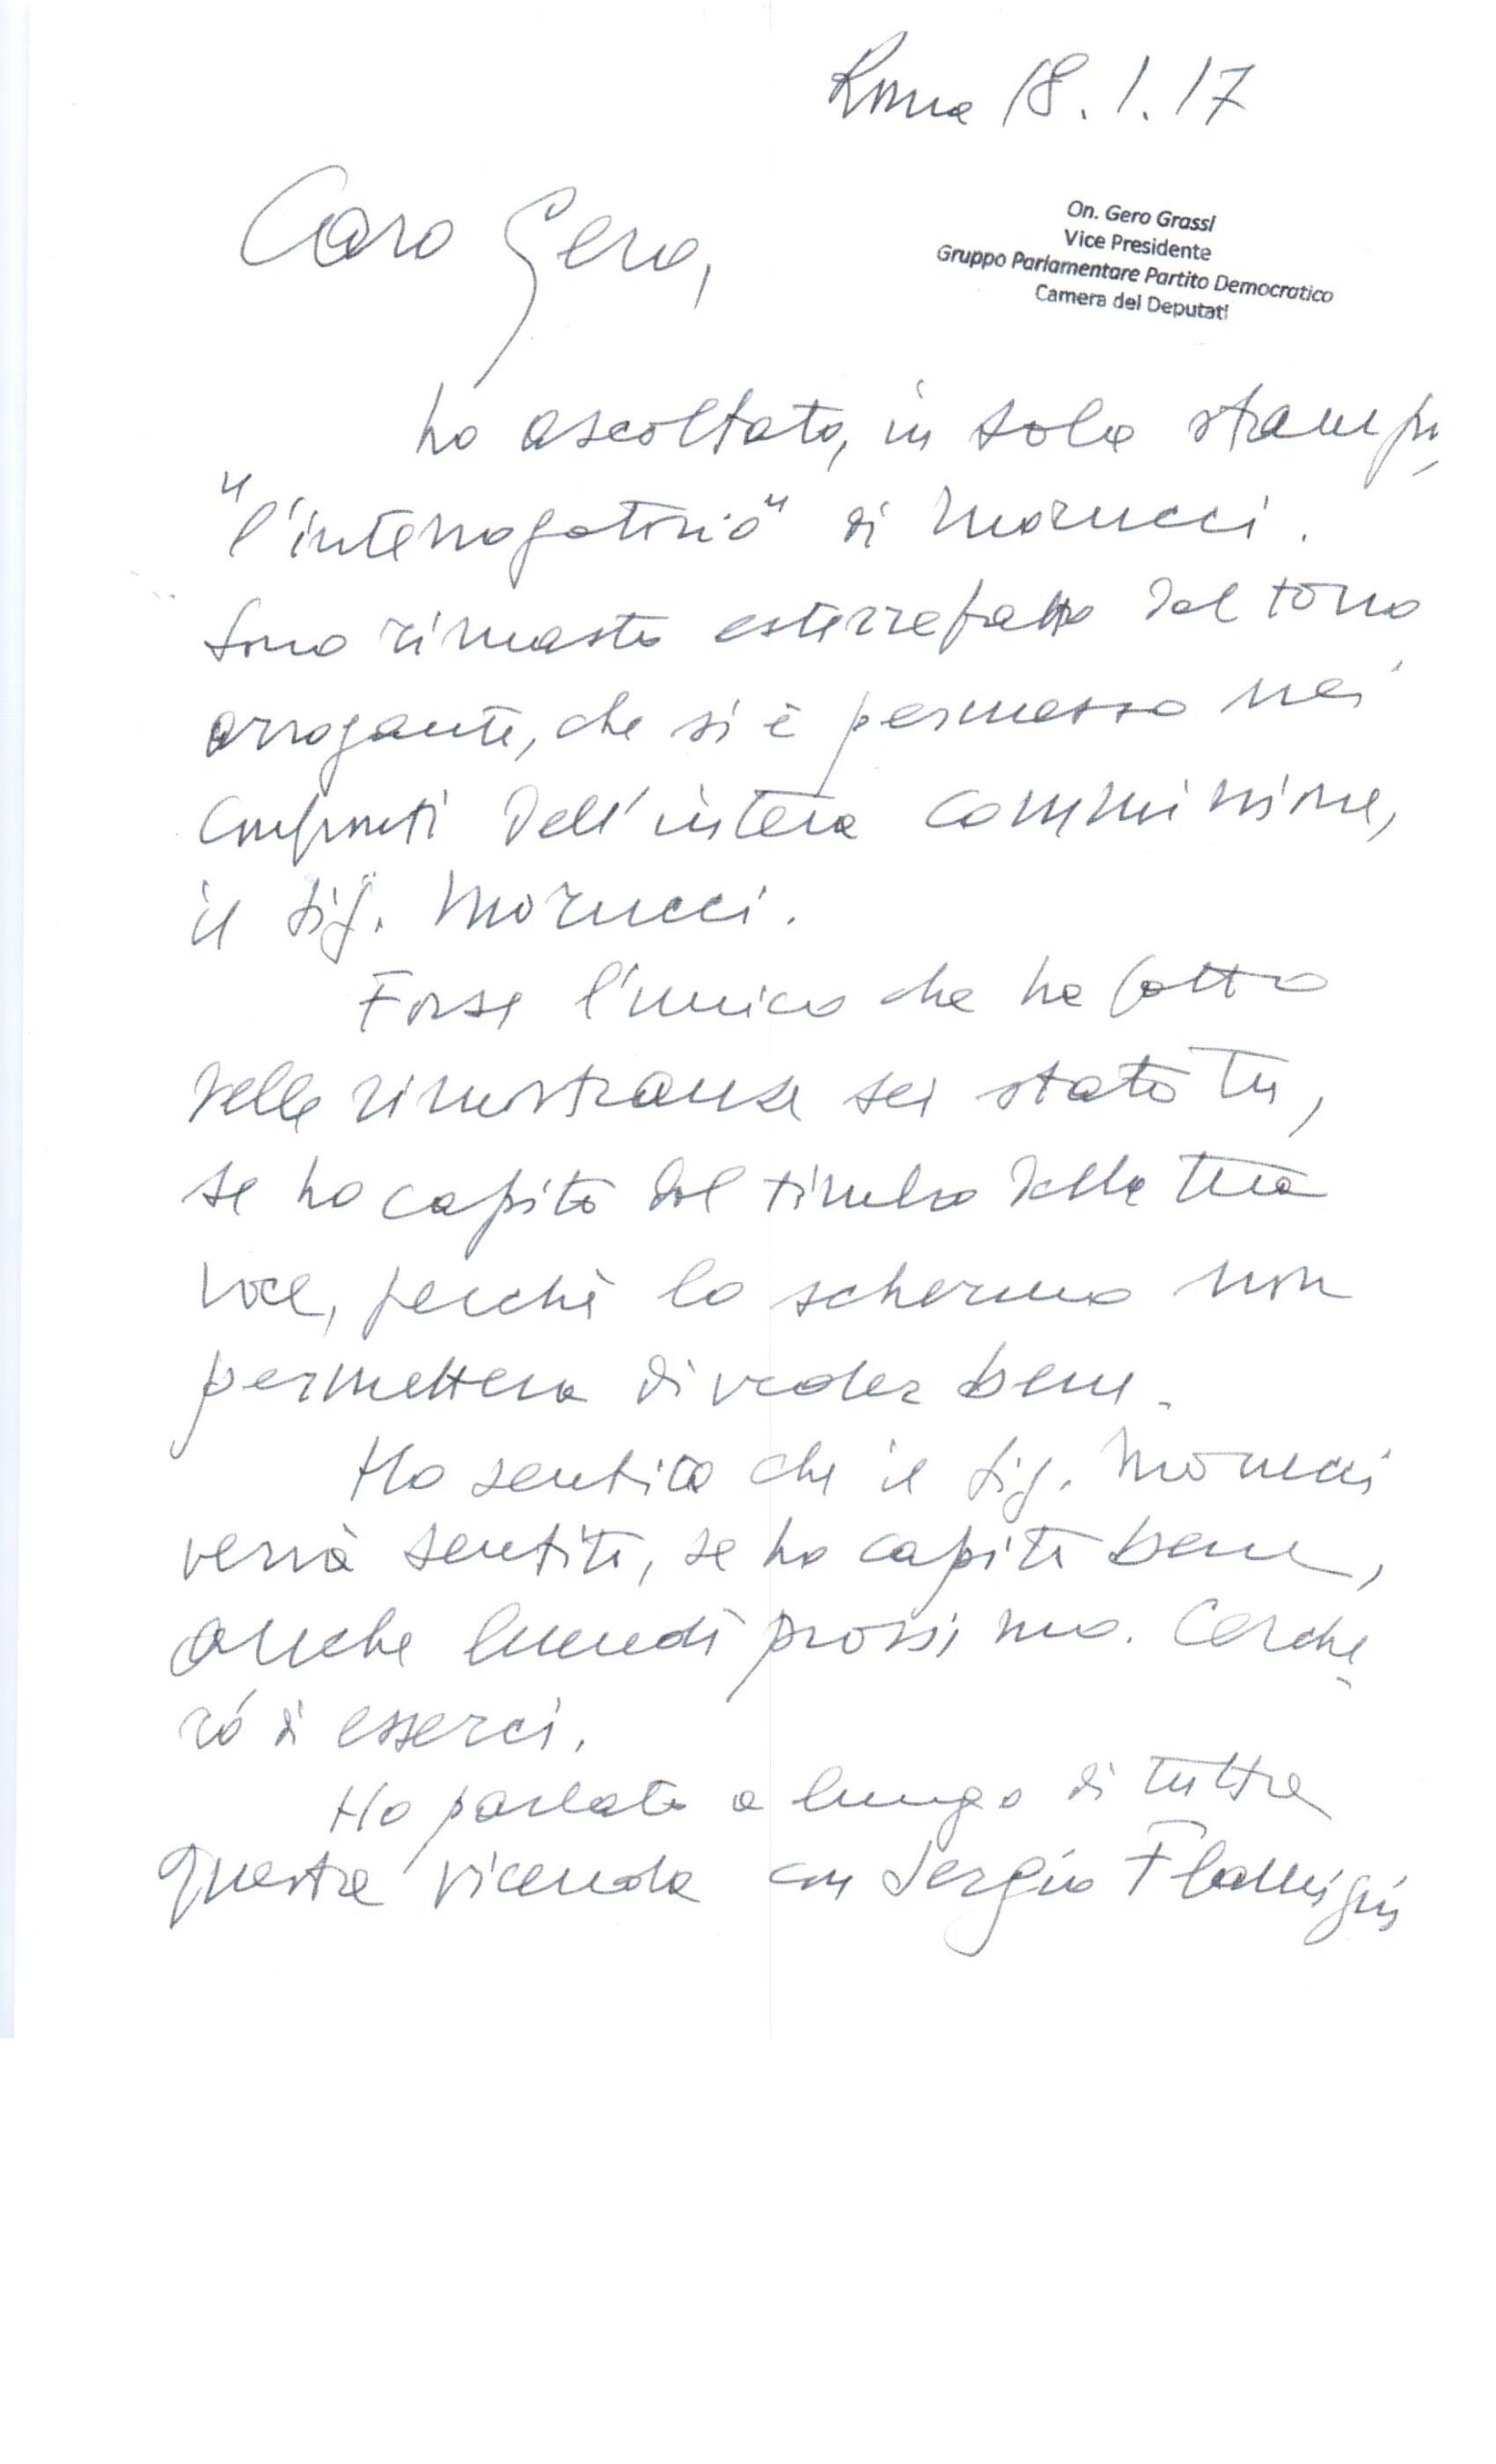 Roma 18.1.17
On. Gero Grassi
Vice Presidente
Gruppo Parlamentare Partito Democratico
Camera dei Deputati
Caro Gero,
ho ascoltato, in sala stampa,
"l'interrogatorio" di Morucci.
Sono rimasto esterrefatto dal tono
arrogante, che si è permesso nei
confronti dell'intera commissione,
il sig. Morucci.
Forse l'unico che ha fatto
delle rimostranze sei stato tu,
se ho capito dal timbro della tua
voce, perchè lo schermo non
permetteva di veder bene.
Ho sentito che il sig. Morucci
verrà sentito, se ho capito bene,
anche lunedì prossimo. Cerche
rò di esserci.
Ho parlato a lungo di tutta
questa vicenda con Sergio Flamigni